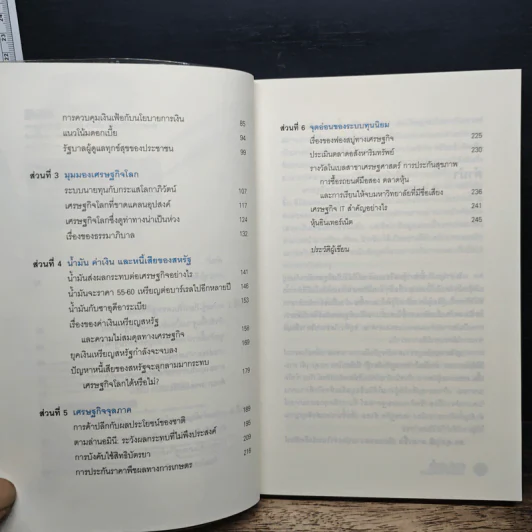 การควบคุมเงินเฟ้อกับนโยบายการเงิน 86
แนวโน้มดอกเบี้ย 94
รัฐบาลผู้ดูแลทุกข์สุขของประชาชน 99
ส่วนที่ 3 มุมมองเศรษฐกิจโลก
ระบบนายทุนกับกระแสโลกาภิวัตน์ 107
เศรษฐกิจโลกที่ขาดแคลนอุปสงค์ 117
เศรษฐกิจโลกซึ่งดูท่าทางน่าเป็นห่วง 124
เรื่องของธรรมาภิบาล 132
ส่วนที่ 4 น้ำมัน ค่าเงิน และหนี้เสียของสหรัฐ
น้ำมันส่งผลกระทบต่อเศรษฐกิจอย่างไร 141
น้ำมันจะราคา 55-60 เหรียญต่อบาร์เรลไปอีกหลายปี 146
น้ำมันกับซาอุดีอาระเบีย 153
เรื่องของค่าเงินเหรียญสหรัฐ
และความไม่สมดุลทางเศรษฐกิจ 158
ยุคเงินเหรียญสหรัฐกำลังจะจบลง 168
ปัญหาหนี้เสียของสหรัฐจะลุกลามมากระทบ
เศรษฐกิจโลกได้หรือไม่? 179
ส่วนที่ 5 เศรษฐกิจจุลภาค
การค้าปลีกกับผลประโยชน์ของชาติ 189
ตามล่านอมินี: ระวังผลกระทบที่ไม่พึงประสงค์ 195
การบังคับใช้สิทธิบัตรยา 209
การประกันราคาพืชผลทางการเกษตร 218
ส่วนที่ 6 จุดอ่อนของระบบทุนนิยม
เรื่องของฟองสบู่ทางเศรษฐกิจ 225
ประเมินตลาดอสังหาริมทรัพย์ 230
รางวัลโนเบลสาขาเศรษฐศาสตร์ การประกันสุขภาพ
การซื้อรถยนต์มือสอง ตลาดหุ้น
และการเรียนให้จบมหาวิทยาลัยที่มีชื่อเสียง 236
เศรษฐกิจ IT สำคัญอย่างไร 241
หุ้นอินเทอร์เน็ต 245
ประวัติผู้เขียน